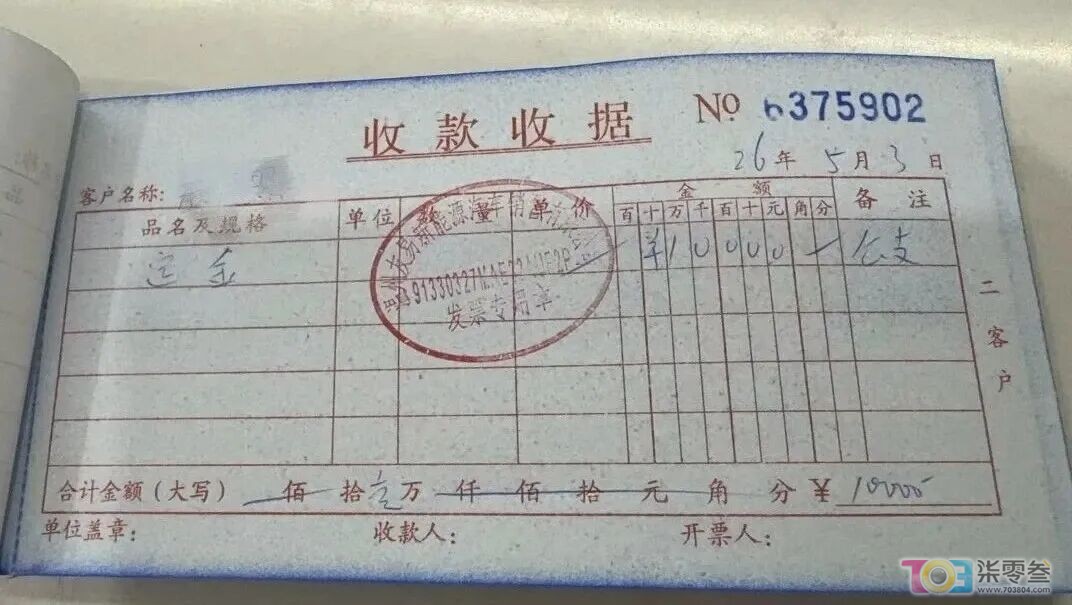 收款收据
No 6375902
26年5月3日
客户名称:
品名及规格 单位 数量 单价 金额 备注
百十万千百十元角分
定金 ¥10000 公支
发票专用章
合计金额(大写) 佰 拾 壹万 仟 佰 拾 元 角 分 ¥ 10000
单位盖章: 收款人: 开票人:
二客户
703 柒零叁
www.703804.com